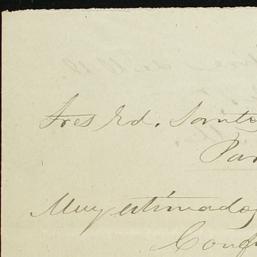 Sres Ed. Santi
Par
Muy estimados
Conf